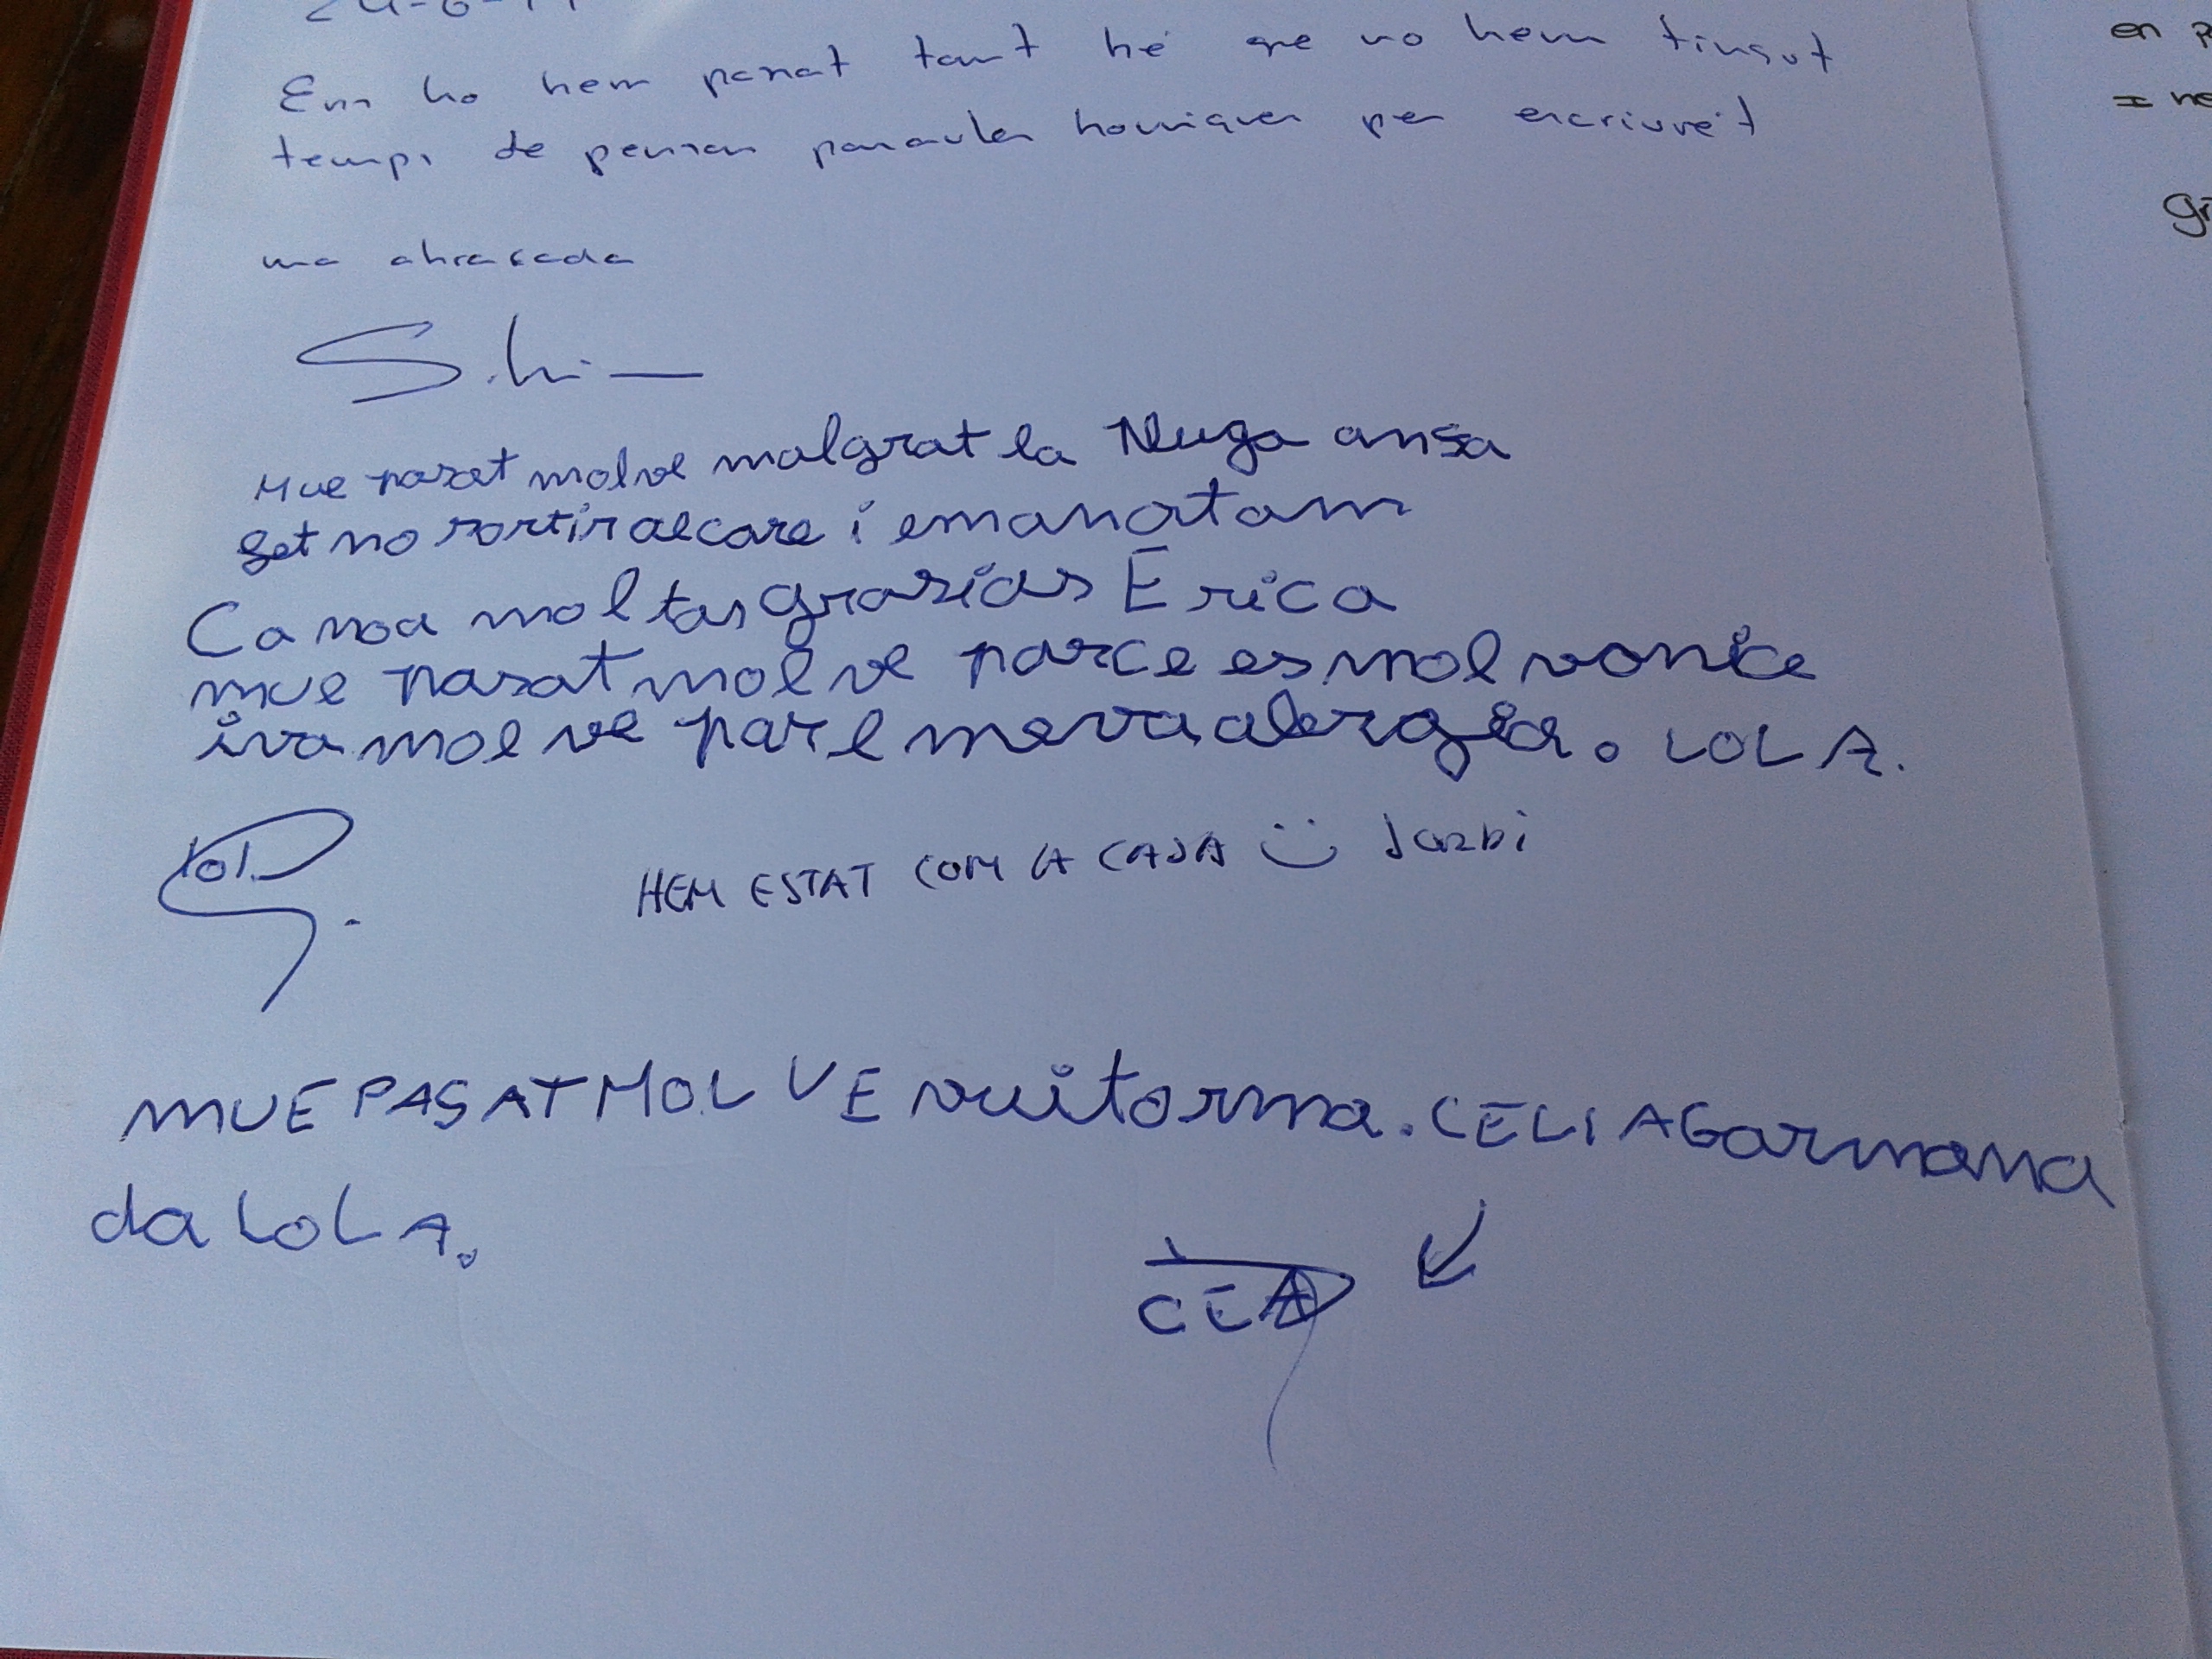 Ens ho hem pasat tant bé que no hem tingut
temps de pensar paraules boniques per escriure't
una abraçada
Mue pasat mol ve malgrat la Pluga ansa
get no sortir al care i emanat am
Canoa moltas grasias Erica
mue pasat mol ve parce es mol vonic e
iva mol ve par l meva alergia. LOLA.
lol
HEM ESTAT COM A CASA Jordi
MUE PASAT MOL VE vuit orma. CELIA Garmana
da LOLA.
CEA
en
I